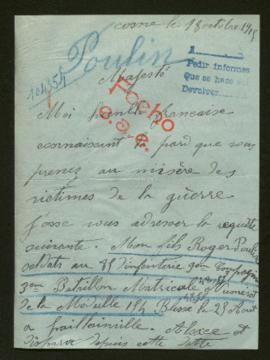 cosne le 18 octobre 1915
Poulin
104354
A
Pedir informes
Que se hace
Devolver
Majesté
Fecho
Moi pauvre française
connaissant la pard que vous
prenez au misère des
victimes de la guèrre
j'ose vous adresser la requête
suivante. Mon fils Roger Poulin
soldats au 85 d'infanterie 9em Compagnie
3em Bataillon Matricule
de la Médaille 184 Blessé le 25 Aout
a
disparu depuis cette date